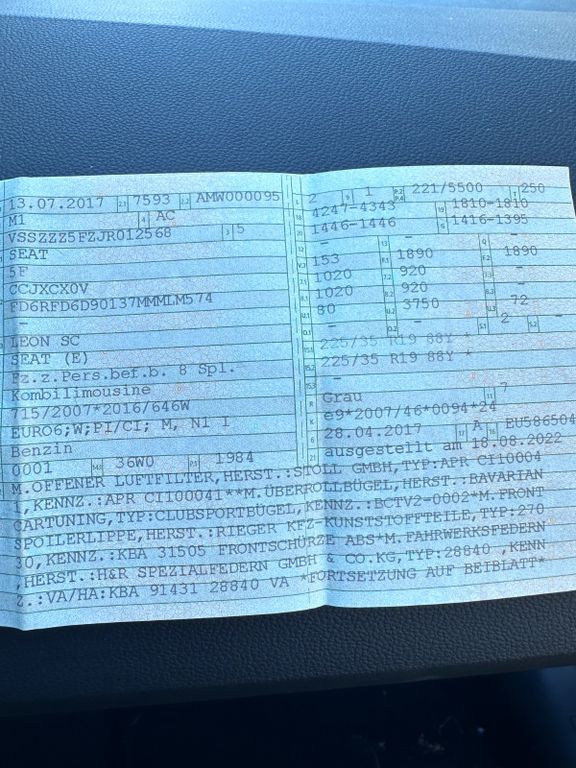 13.07.2017 7593 AMW000095
M1 AC
VSSZZZ5FZJR012568 5
SEAT
5F
CCJXCX0V
FD6RFD6D90137MMMLM574
-
LEON SC
SEAT (E)
Fz.z.Pers.bef.b. 8 Spl.
Kombilimousine
715/2007*2016/646W
EURO6;W;PI/CI; M, N1 I
Benzin
0001 36W0 1984
2 1 221/5500 250
4247-4343 1810-1810
1446-1446 1416-1395
- - -
153 1890 1890
1020 920 -
1020 920 -
80 3750 72
- - 2 -
225/35 R19 88Y *
225/35 R19 88Y *
-
Grau 7
e9*2007/46*0094*24
28.04.2017 A EU586504
ausgestellt am 18.08.2022
M.OFFENER LUFTFILTER,HERST.:STOLL GMBH,TYP:APR CI10004
1,KENNZ.:APR CI100041**M.ÜBERROLLBÜGEL,HERST.:BAVARIAN
CARTUNING,TYP:CLUBSPORTBÜGEL,KENNZ.:BCTV2-0002*M.FRONT
SPOILERLIPPE,HERST.:RIEGER KFZ-KUNSTSTOFFTEILE,TYP:270
30,KENNZ.:KBA 31505 FRONTSCHÜRZE ABS*M.FAHRWERKSFEDERN
,HERST.:H&R SPEZIALFEDERN GMBH & CO.KG,TYP:28840 ,KENN
Z.:VA/HA:KBA 91431 28840 VA *FORTSETZUNG AUF BEIBLATT*